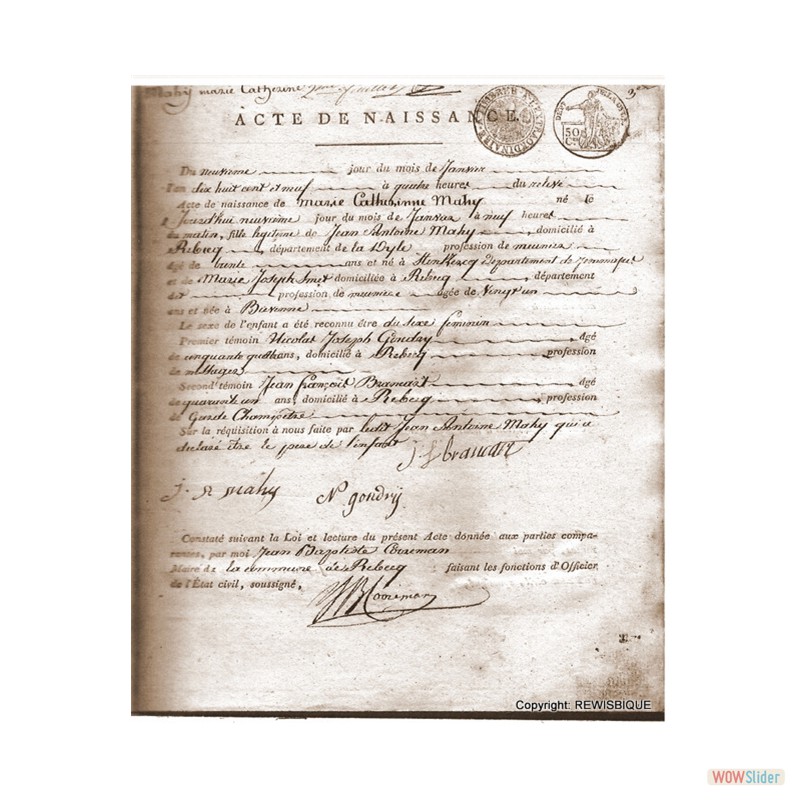 Mahy marie Catherine
ACTE DE NAISSANCE.
50 C.
Du neuvieme jour du mois de Janvier
l'an dix huit cent et neuf à quatre heures du relevé
Acte de naissance de Marie Catherinne Mahy né le
Jourd'hui neuvieme jour du mois de Janvier à neuf heures
du matin, fille legitime de Jean Antoine Mahy, domicilié à
Rebecq, département de la Dyle profession de meunier
âgé de trente ans et né à Département de Jemmapes
et de Marie Joseph Smet domiciliée à Rebecq, département
dit profession de meuniere âgée de Vingt un
ans et née à
Le sexe de l'enfant a été reconnu être du sexe feminin
Premier témoin Nicolas Joseph Gondry âgé
de cinquante quatre ans, domicilié à Rebecq, profession
de
Second témoin Jean françois Bramart, âgé
de quarante un ans, domicilié à Rebecq, profession
de Garde Champêtre
Sur la réquisition à nous faite par ledit Jean Antoine Mahy qui a
declaré être le pere de l'enfant
mahy N gondrij
Constaté suivant la Loi et lecture du présent Acte donnée aux parties compa-
rantes, par moi Jean Baptiste Cooreman
Maire de la commune de Rebecq faisant les fonctions d'Officier
de l'État civil, soussigné,
Cooreman
Copyright: REWISBIQUE
WOWSlider